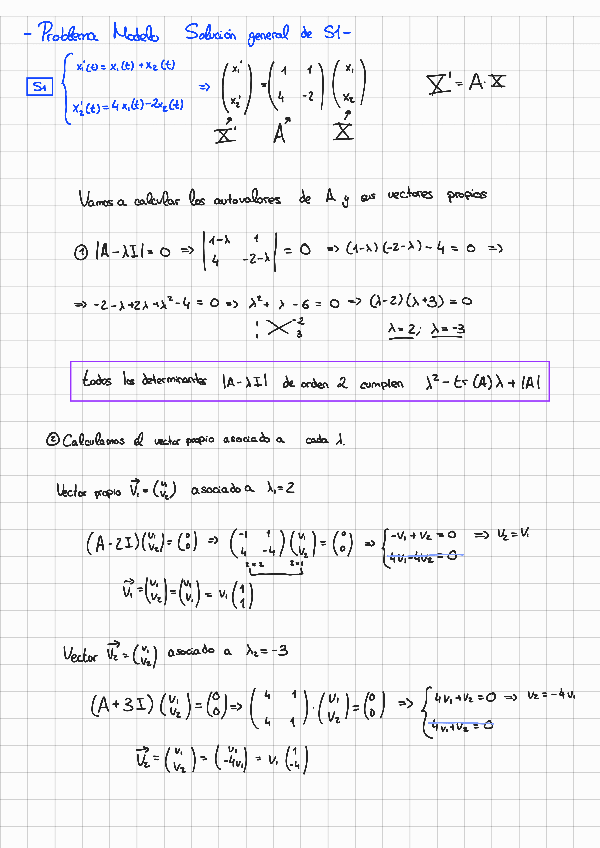 - Problema Modelo Solución general de S1-
S1 { x₁'(t) = x₁(t) + x₂(t)
x₂'(t) = 4x₁(t) - 2x₂(t) => (x₁' x₂') = (1 1 4 -2) (x₁ x₂) X' = A·X
X' A X
Vamos a calcular los autovalores de A y sus vectores propios
① |A-λI| = 0 => |1-λ 1 4 -2-λ| = 0 => (1-λ)(-2-λ) - 4 = 0 =>
=> -2-λ+2λ+λ²-4 = 0 => λ² + λ - 6 = 0 => (λ-2)(λ+3) = 0
1 -2
1 3 λ = 2; λ = -3
todos los determinantes |A-λI| de orden 2 cumplen λ² - tr(A)λ + |A|
② Calculamos el vector propio asociado a cada λ.
Vector propio V₁ = (v₁ v₂) asociado a λ₁ = 2
(A-2I)(v₁ v₂) = (0 0) => (-1 1 4 -4)(v₁ v₂) = (0 0) => { -v₁ + v₂ = 0 => v₂ = v₁
4v₁ - 4v₂ = 0
2×2 2×1
V₁ = (v₁ v₂) = (v₁ v₁) = v₁ (1 1)
Vector V₂ = (v₁ v₂) asociado a λ₂ = -3
(A+3I)(v₁ v₂) = (0 0) => (4 1 4 1)·(v₁ v₂) = (0 0) => { 4v₁ + v₂ = 0 => v₂ = -4v₁
4v₁ + v₂ = 0
V₂ = (v₁ v₂) = (v₁ -4v₁) = v₁ (1 -4)